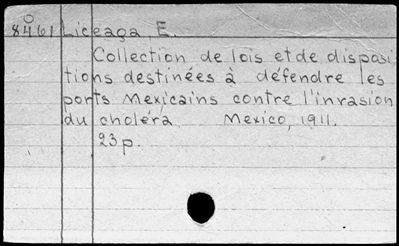 8461 Liceaga, E.
Collection de lois et de disposi
tions destinées à défendre les
ports Mexicains contre l'invasion
du choléra Mexico, 1911.
23p.